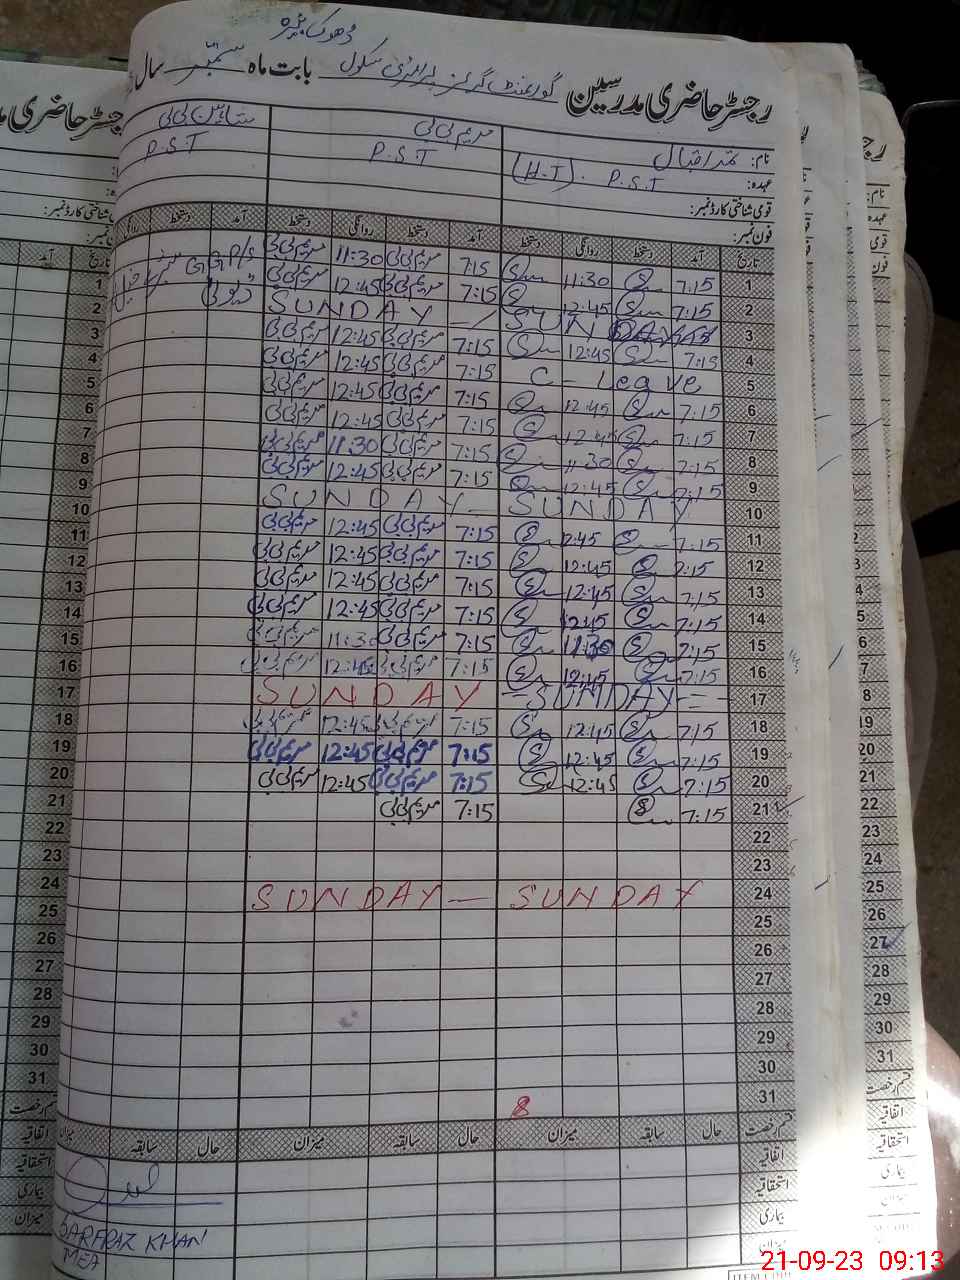 رجسٹر حاضری مدرسین گورنمنٹ گرلز پرائمری سکول بابت ماہ ستمبر سال
نام: ثمر اقبال مریم بی بی شاہین بی بی
عہدہ: P.S.T (H.T) P.S.T P.S.T
قومی شناختی کارڈ نمبر:
فون نمبر:
تاریخ آمد دستخط روانگی دستخط آمد دستخط روانگی دستخط آمد دستخط روانگی
1 7:15 11:30 7:15 مریم بی بی 11:30 مریم بی بی GGP/S
2 7:15 12:45 7:15 مریم بی بی 12:45 مریم بی بی
3 SUNDAY SUNDAY
4 7:15 12:45 7:15 مریم بی بی 12:45 مریم بی بی
5 C - Leave 7:15 مریم بی بی 12:45 مریم بی بی
6 7:15 12:45 7:15 مریم بی بی 12:45 مریم بی بی
7 7:15 12:45 7:15 مریم بی بی 12:45 مریم بی بی
8 7:15 11:30 7:15 مریم بی بی 11:30 مریم بی بی
9 7:15 12:45 7:15 مریم بی بی 12:45 مریم بی بی
10 SUNDAY - SUNDAY
11 7:15 12:45 7:15 مریم بی بی 12:45 مریم بی بی
12 7:15 12:45 7:15 مریم بی بی 12:45 مریم بی بی
13 7:15 12:45 7:15 مریم بی بی 12:45 مریم بی بی
14 7:15 12:45 7:15 مریم بی بی 12:45 مریم بی بی
15 7:15 11:30 7:15 مریم بی بی 11:30 مریم بی بی
16 7:15 12:45 7:15 مریم بی بی 12:45 مریم بی بی
17 SUNDAY = SUNDAY =
18 7:15 12:45 7:15 مریم بی بی 12:45 مریم بی بی
19 7:15 12:45 7:15 مریم بی بی 12:45 مریم بی بی
20 7:15 12:45 7:15 مریم بی بی 12:45 مریم بی بی
21 7:15 7:15 مریم بی بی
22
23
24 SUNDAY — SUNDAY
25
26
27
28
29
30
31
8
قسم رخصت حال سابقہ میزان حال سابقہ میزان حال سابقہ میزان
اتفاقیہ
استحقاقیہ
بیماری
میزان
SARFRAZ KHAN
MEA
21-09-23 09:13